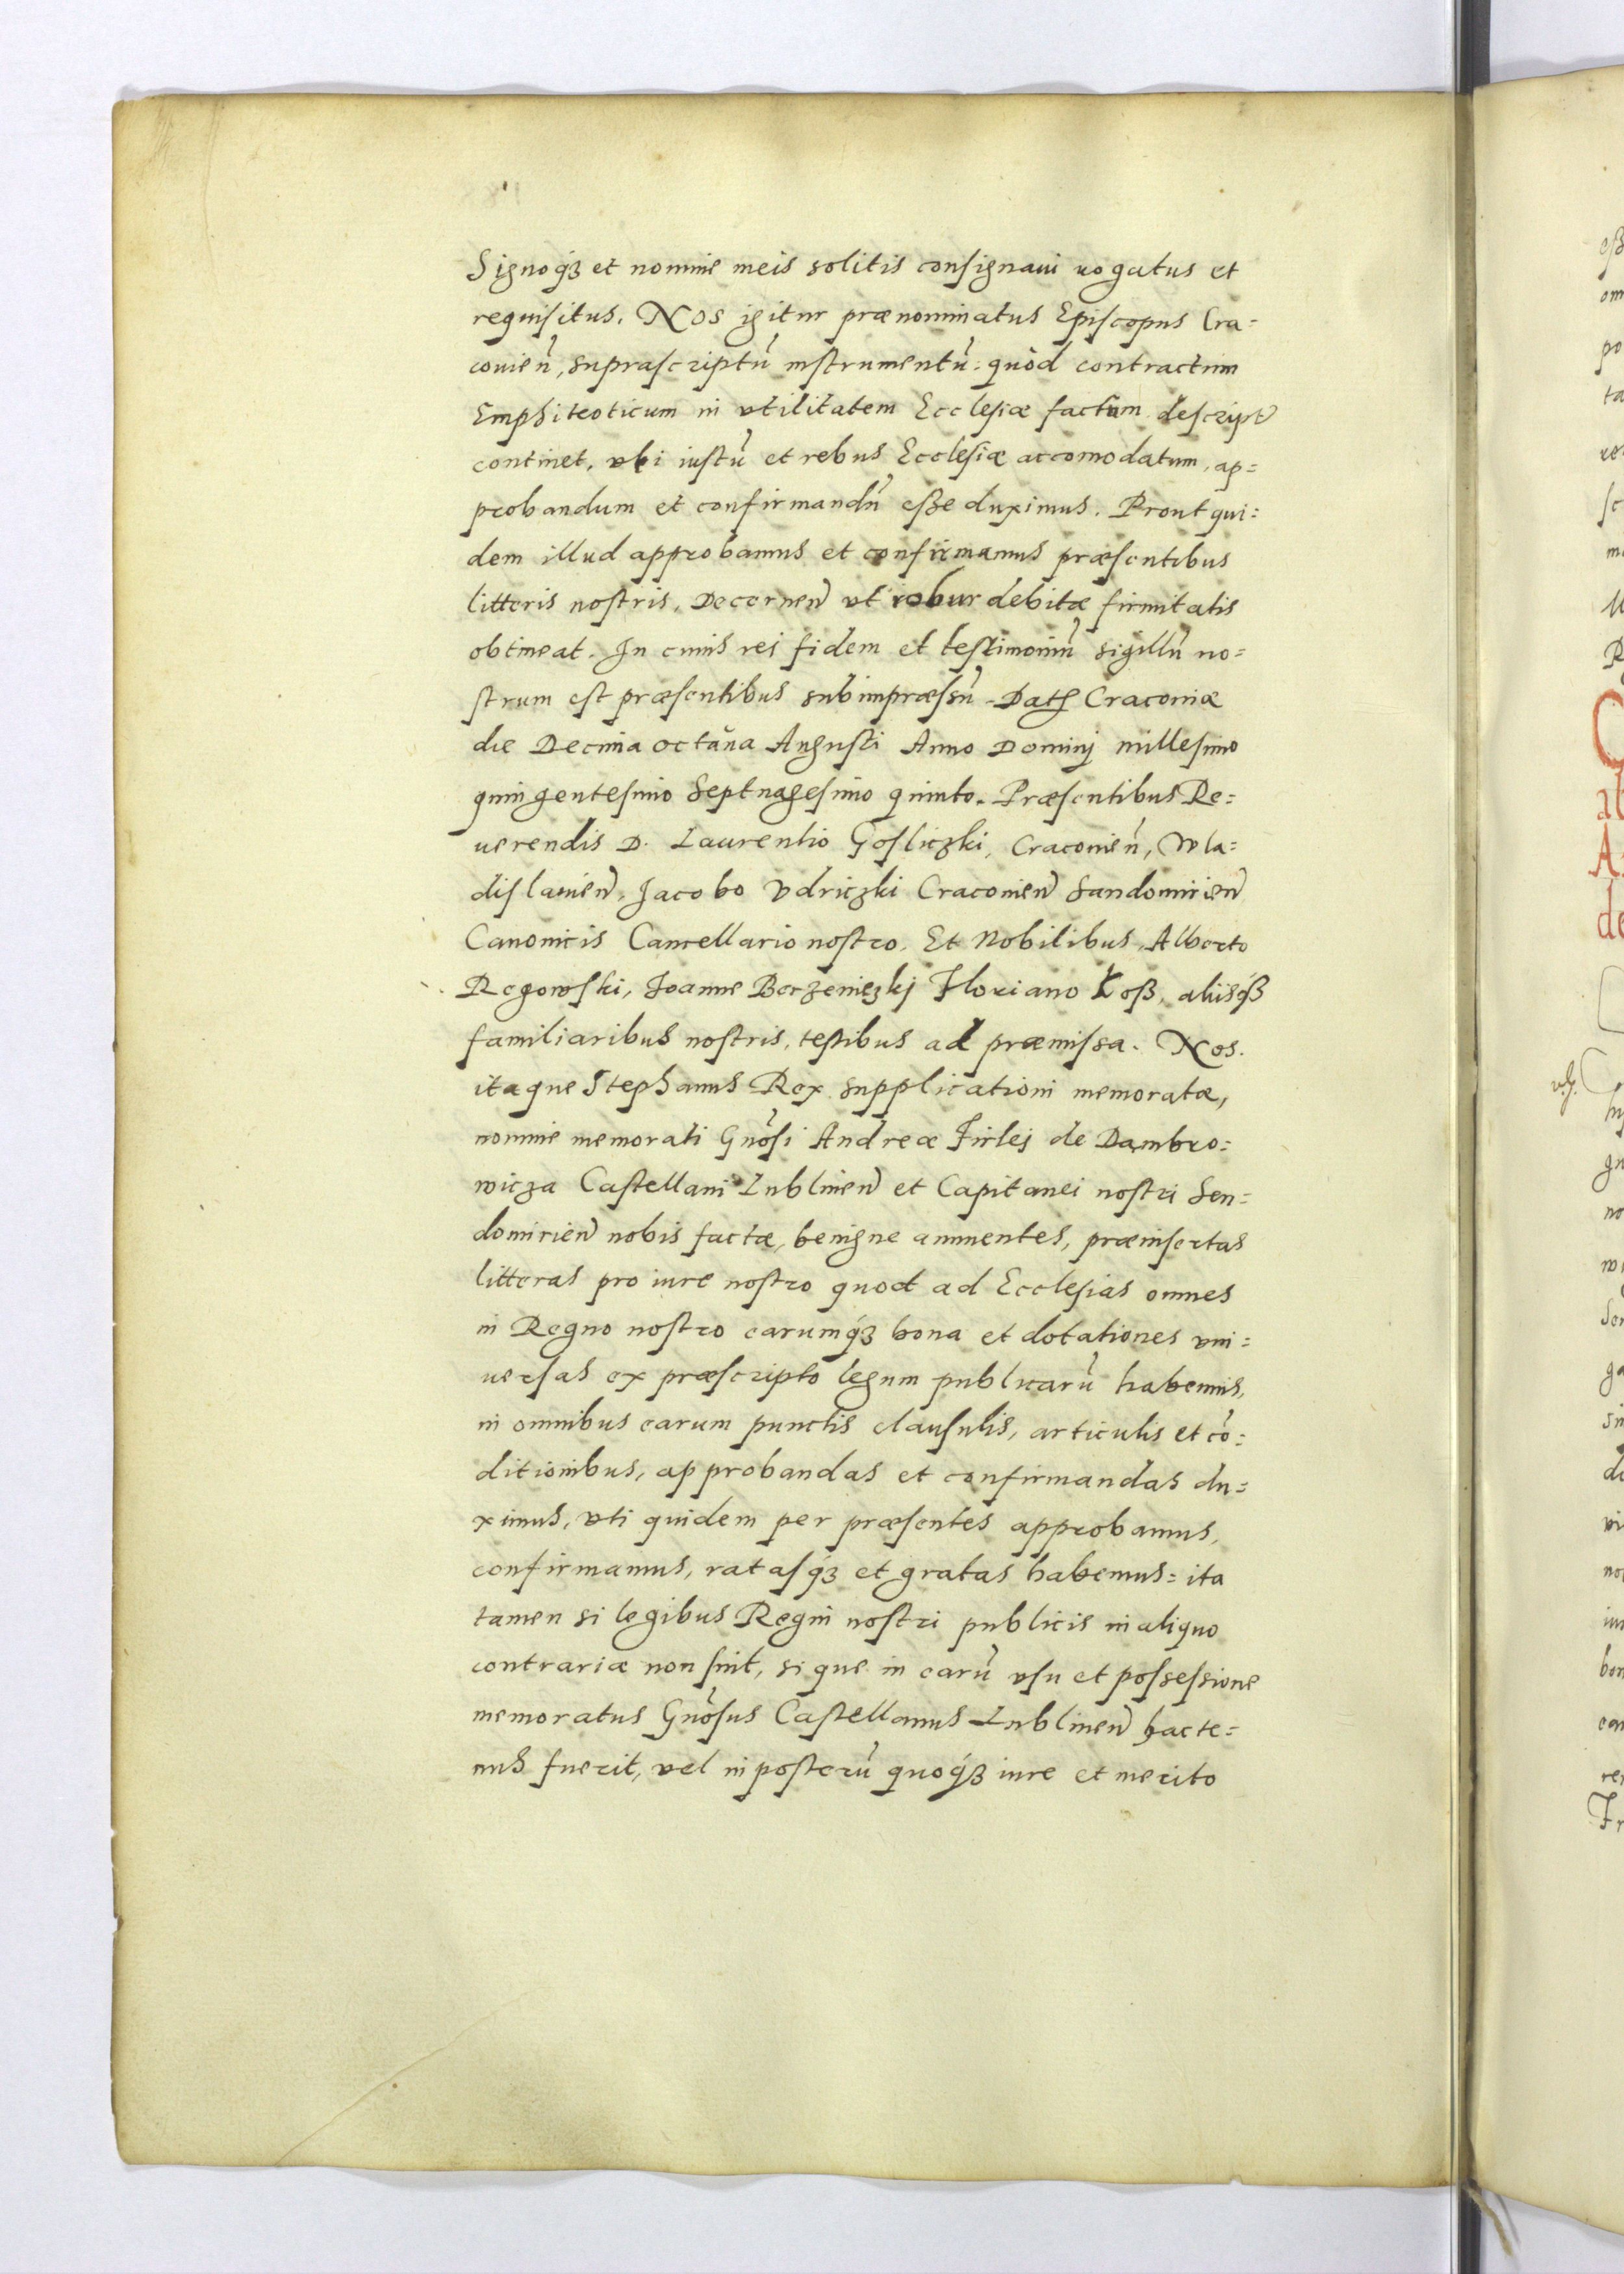 Signoq3 et nomine meis solitis consignaui uogatus et
requisitus. Nos igitur prænominatus Episcopus Cra=
couien̄, suprascriptū instrumentū: quòd contractum
Emphiteoticum in vtilitatem Ecclesiæ factum descript
continet, vbi iustū et rebus Ecclesiæ accomodatum, ap=
probandum et confirmandū eße duximus. Prout qui=
dem illud approbamus et confirmamus præsentibus
litteris nostris, Decernen̄ vt robur debitæ firmitatis
obtineat. In cuius rei fidem et testimoniū sigillū no=
strum est præsentibus subimpræssū. Dat Cracouiæ
die Decima octaua Augusti Anno Dominj millesimo
quingentesimo Septuagesimo quinto. Præsentibus Re=
uerendis D. Laurentio Gosliczki, Cracouien̄, Wla=
dislauien̄, Jacobo Vdriczki Cracouien̄ Sandomirien̄
Canonicis Cancellario nostro. Et Nobilibus, Alberto
Regowski, Joanne Berzeniczkj Floriano Koß, aliisq3
familiaribus nostris, testibus ad præmissa. Nos.
itaque Stephanus Rex supplicationi memoratæ,
nomine memorati Gnōsi Andreæ Firlej de Dambro=
wicza Castellani Lublinen̄ et Capitanei nostri Sen=
domirien̄ nobis factæ, benigne annuentes, præinsertas
litteras pro iure nostro quod ad Ecclesias omnes
in Regno nostro earumq3 bona et dotationes vni=
uersas ex præscripto legum publicarū habemus,
in omnibus earum punctis clausulis, articulis et cō=
ditionibus, approbandas et confirmandas du=
ximus, vti quidem per præsentes approbamus,
confirmamus, ratasq3 et gratas habemus= ita
tamen si legibus Regni nostri publicis in aliquo
contrariæ non sint, si que in earū vsu et possessione
memoratus Gnōsus Castellanus Lublinen̄ hacte=
nus fuerit, vel in posterū quoq3 iure et merito